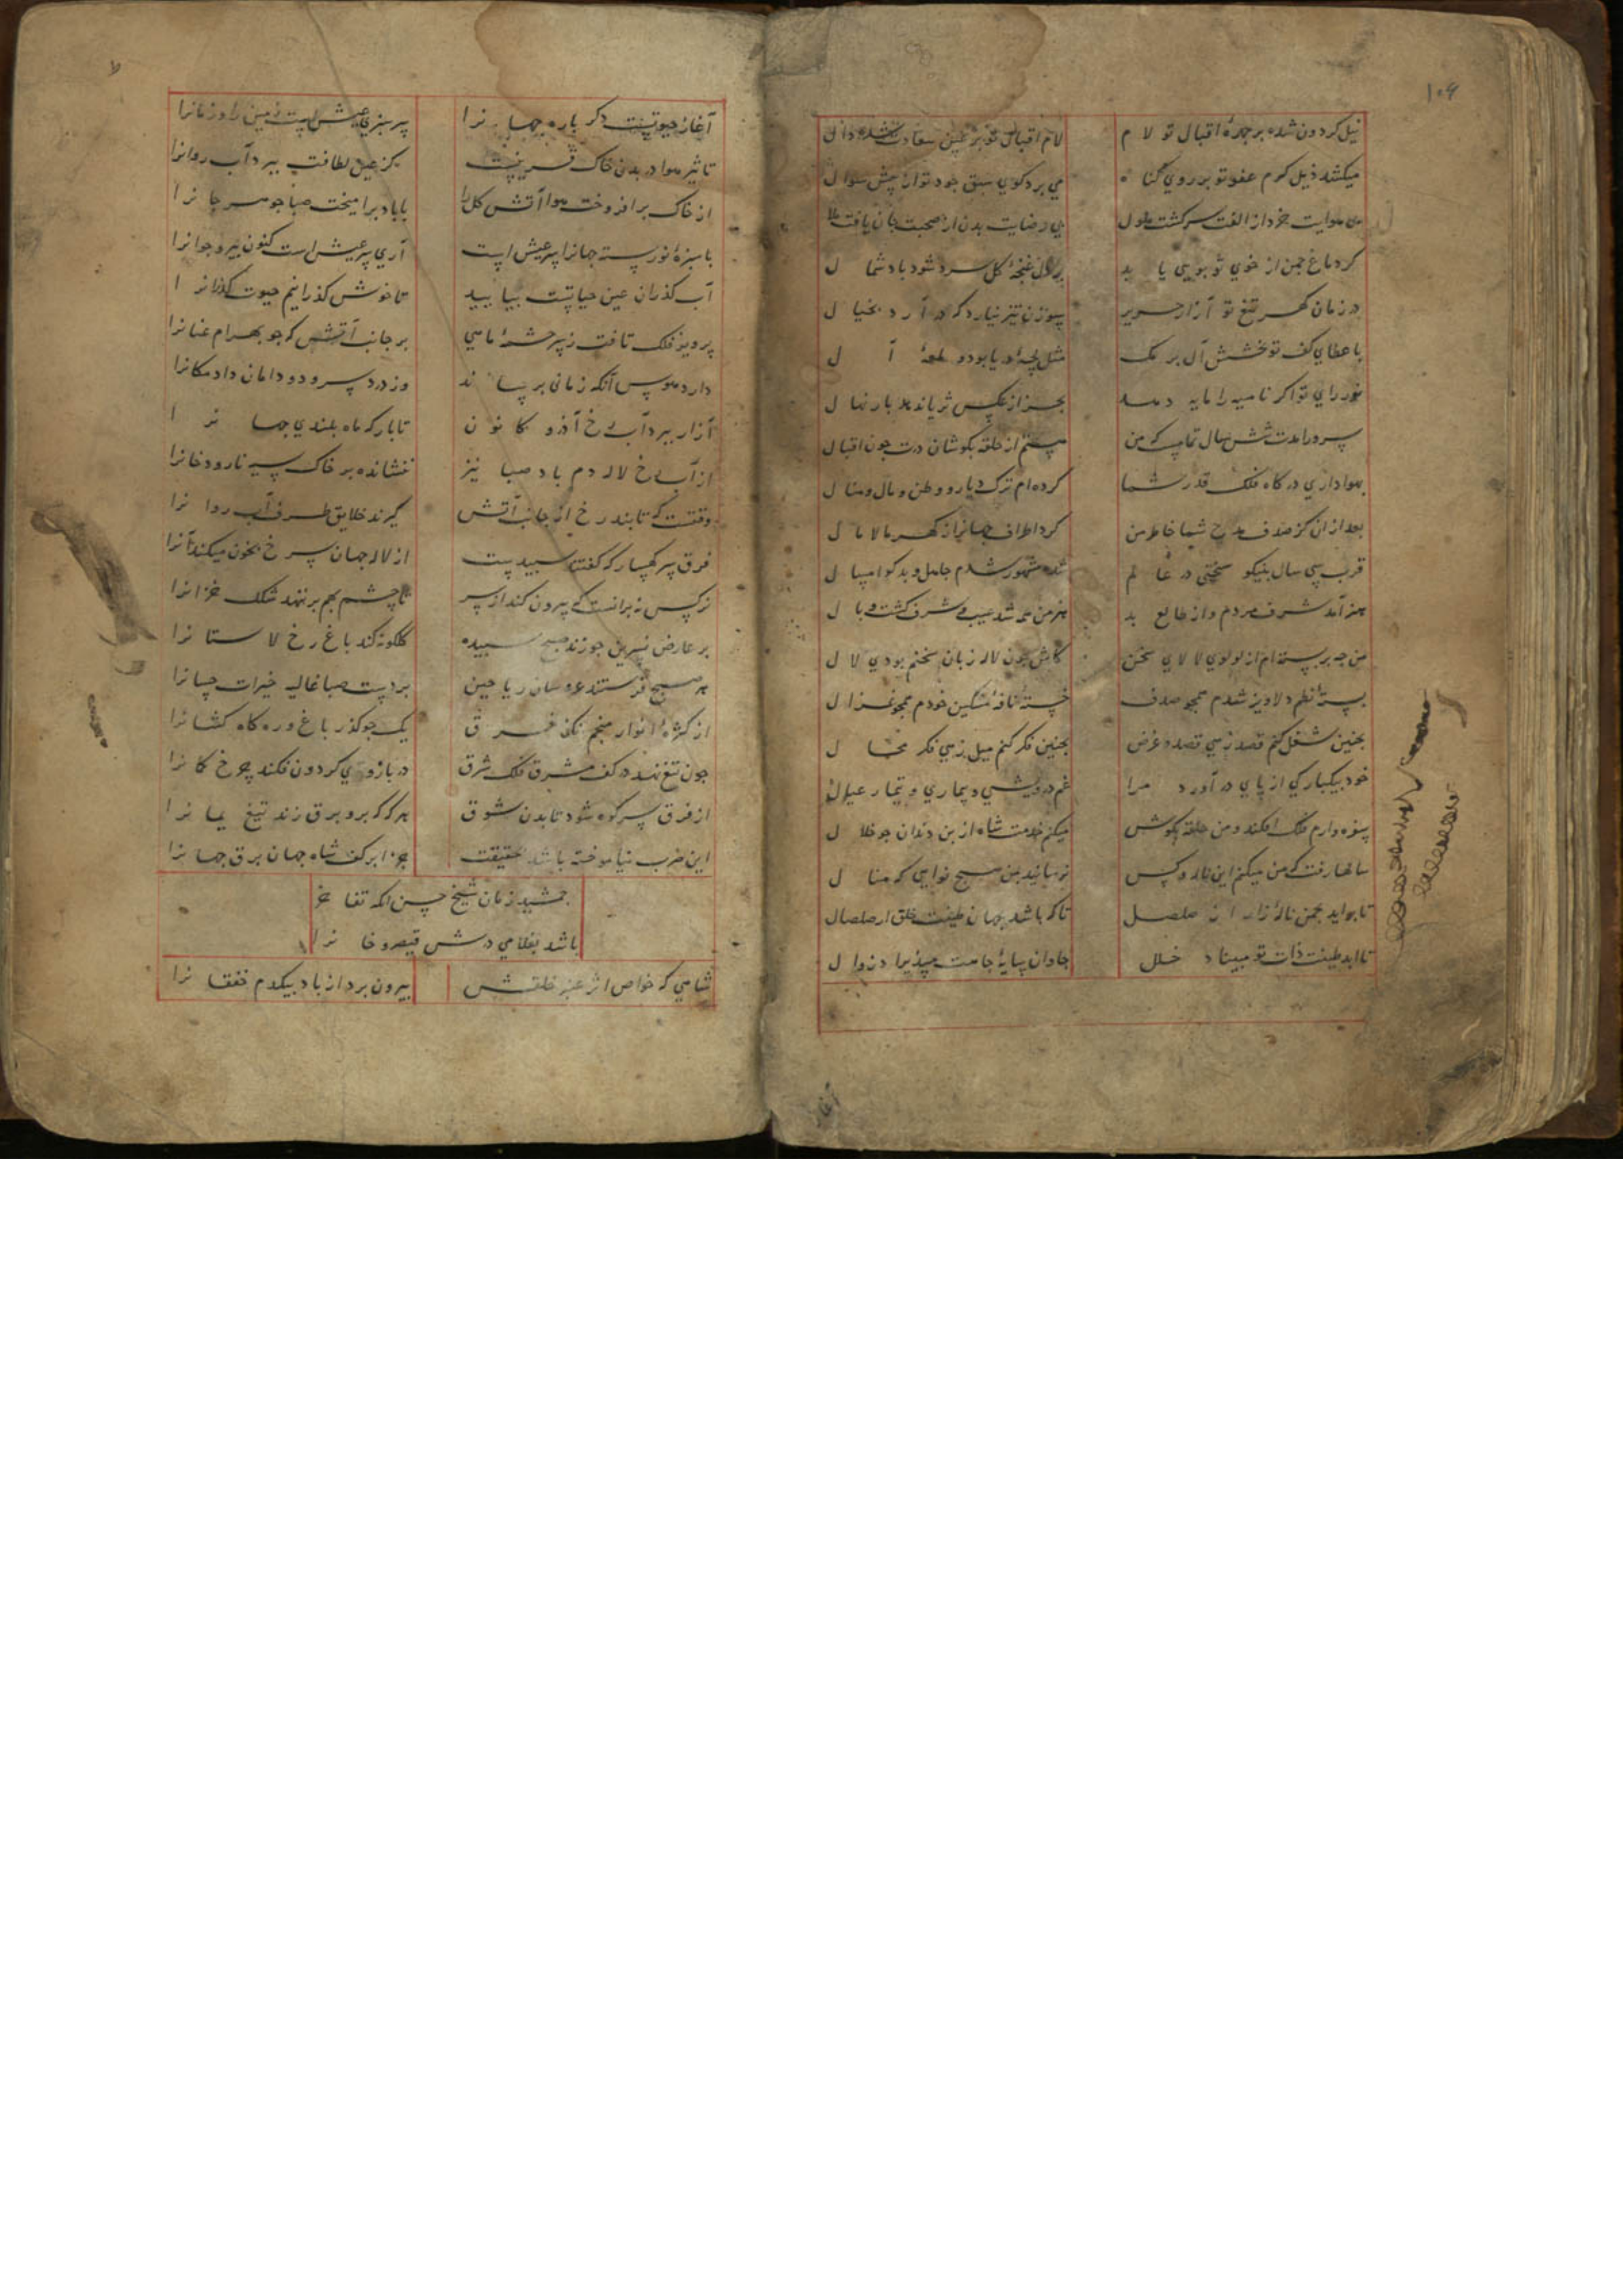 ۱۰۶
نیل کردون شده بر چهرهٔ اقبال تو لام
لام اقبال تو بر عین سعادت شده دال
میکشد ذیل کرم عفو تو بر روی کناه
می برد کوی سبق جود تو از پیش سوال
بی هوایت خرد از الفت سر کشت ملول
بی رضایت بدن از صحبت جان یافت ملال
کر دماغ چمن از خوی تو بویی یابد
بر دل غنچهٔ کل سرد شود باد شمال
در زمان تیغ تو آزار حریر
سوزن تیز نیارد که در آرد بخیال
با عطای کف تو بخشش آل برمک
مثل لجهٔ دریا بود و لمعهٔ آل
نور رای تو اکر نامیه را مایه دهد
بجز از نرکس ثریا ندهد بار نهال
سرورا مدت شش سال تمامست که من
هستم از حلقه بکوشان درت چون اقبال
بهواداری درکاه فلک قدر شما
کرده ام ترک دیار و وطن و مال و منال
بعد از آن کز صدف مدح شما خاطر من
کرد اطراف جهانرا ز کهر مالامال
قرب سی سال بنیکو سخنی در عالم
شده مشهور شدم جاهل و بدکو امسال
هنر آمد شرف مردم و از طالع بد
هنر من همه شد عیب و شرف کشت وبال
من چه بر بسته ام از لولوی لالای سخن
کاش چون لاله زبان سخنم بودی لال
بستهٔ نظم دلاویز شدم همچو صدف
خستهٔ نافهٔ مشکین خودم همچو غزال
بچنین شغل کنم قصد زهی قصد و غرض
بچنین فکر کنم میل زهی فکر محال
خود بیکباركی از پای در آورد مرا
غم درویشی و بیماری و تیمار عیال
پنزه وارم فلک افکند و من حلقه بکوش
میکنم خدمت شاه از بن دندان چو خلال
سالها رفت که من میکنم این ناله و کس
نرسانید بمن هیچ نوایی که منال
تا برآید بچمن نالهٔ زار از صلصل
تا که باشد بجهان طینت خلق از صلصال
تا ابد طینت ذات تو مبیناد خلل
جاودان سایهٔ جاهت مپذیراد زوال
آغاز حیوتست دکر باره جهانرا
سر سبزی عیش است زمین را و زمانرا
تاثیر هوا در بدن خاک قرینست
کز عین لطافت ببرد آب روانرا
از خاک برافروخت هوا آتش کل را
با باد برآمیخت صبا جوهر جانرا
با سبزهٔ نورسته جهانرا سر عیش است
آری سر عیش است کنون پیر و جوانرا
آب کذران عین حیاتست بیایید
تا خوش کذرانیم حیوت کذرانرا
پرویز فلک تافت ز سرچشمهٔ ماهی
بر جانب آتش که چو بهرام عنانرا
دارد هوس آنکه زمانی بر ساند
آزار ببرد آب رخ آذر و کانون
تا بار که ماه بلندی جهانرا
از آب رخ لاله دم باد صبا نیز
ننشانده بر خاک سیه نارودخانرا
وقتست که تابند رخ از جانب آتش
کیرند خلایق طرف آب روانرا
فرق سر کهسار که کفتند سپیدست
از لاله جهان سرخ بخون میکند آنرا
نرکس نه برانست که بیرون کند از سر
تا چشم بهم بر ننهد شنک خزانرا
بر عارض نسرین چو زند صبح سپیده
کلکونه کند باغ رخ لالستانرا
هر صبح فرستند عروسان ریاحین
بر دست صبا غالیه خیرات حسانرا
از کثرهٔ انوار منجم نکند فرق
یک جو کذر باغ و ره کاه کشانرا
چون تیغ نهد در کف مشرق فلک شرق
در بازوی کردون فکند چرخ کمانرا
از فرق سر کوه شود تا بدن شرق
هر که که برو برق زند تیغ یمانرا
این ضرب نیاموخته باشد بحقیقت
جز ابر کف شاه جهان برق جهانرا
جمشید زمان شیخ حسن آنکه تفاخر
باشد بغلامی درش قیصر و خانرا
شاهی که خواص اثر عنبر خلقش
بیرون برد از باد بیکدم خفقانرا